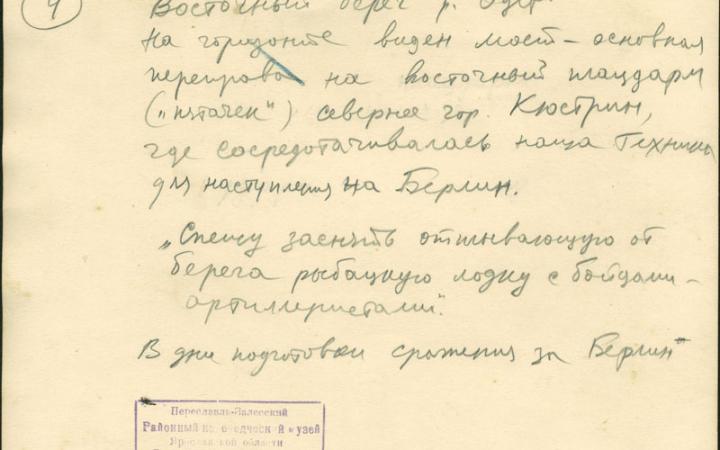 4
Восточный берег р. Одер
На горизонте виден мост – основная
переправа на восточный плацдарм
(„пятачек") севернее гор. Кюстрин,
где сосредотачивалась наша техника
для наступления на Берлин.
„Спешу заснять отплывающую от
берега рыбацкую лодку с бойцами-
артиллеристами".
В дни подготовки сражения за Берлин"
Переславль-Залесский
Районный краеведческий музей
Ярославской области